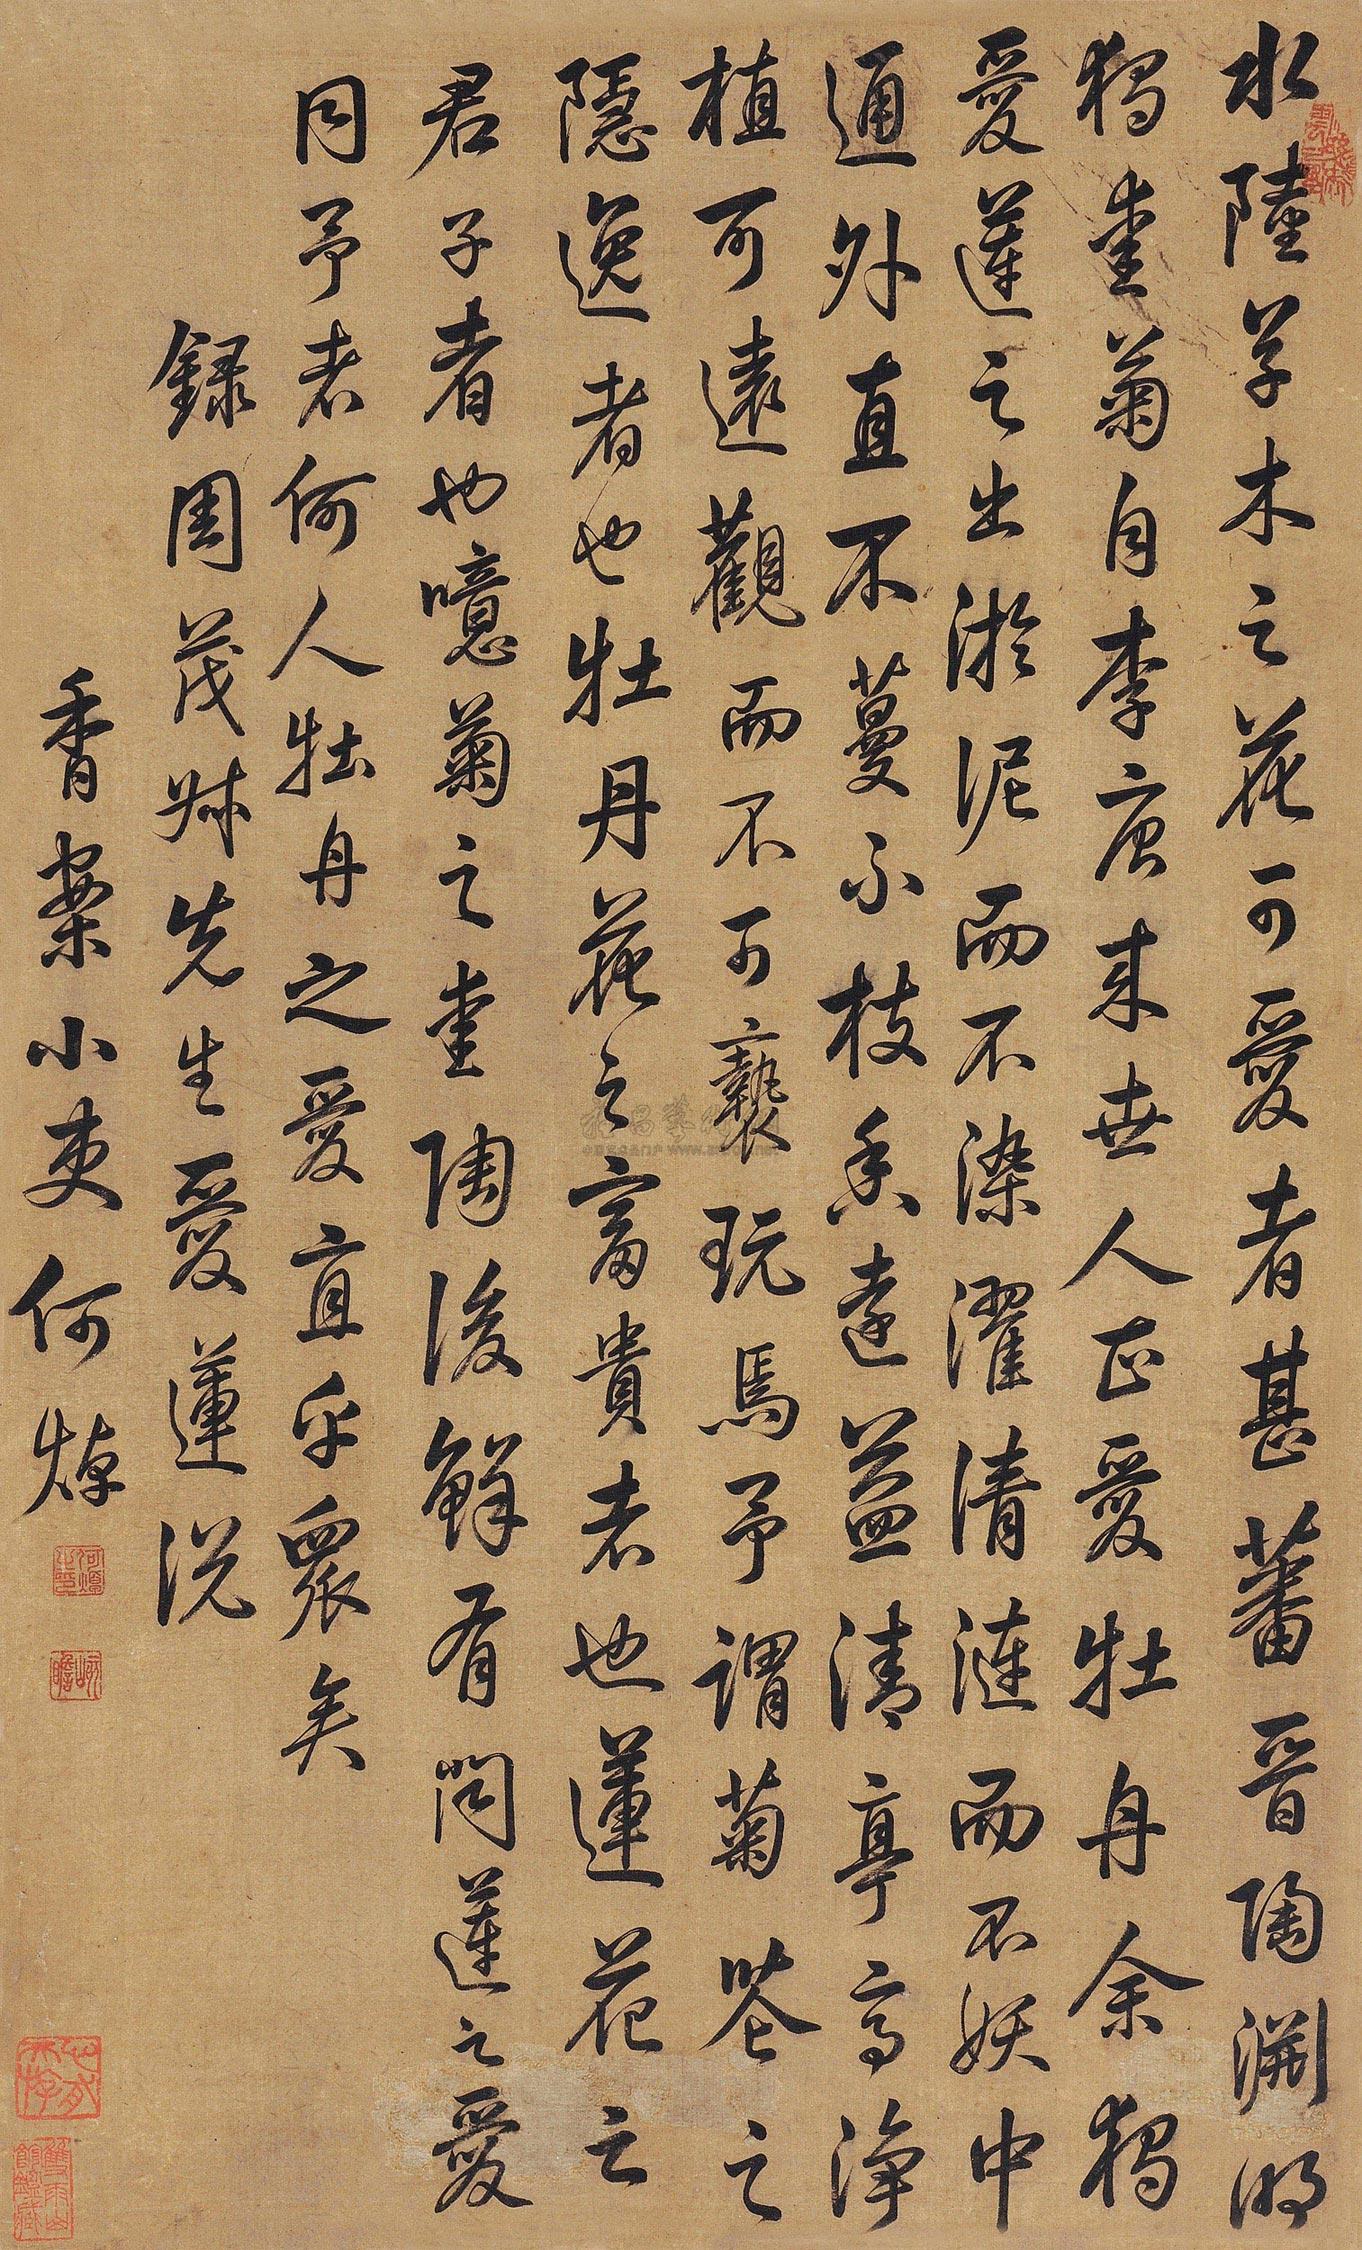 水陸草木之花可愛者甚蕃晉陶淵明
獨愛菊自李唐來世人正愛牡丹余獨
愛蓮之出淤泥而不染濯清漣而不妖中
通外直不蔓不枝香遠益清亭亭淨
植可遠觀而不可褻玩焉予謂菊花之
隱逸者也牡丹花之富貴者也蓮花之
君子者也噫菊之愛陶後鮮有聞蓮之愛
同予者何人牡丹之愛宜乎眾矣
錄周茂叔先生愛蓮說
香案小吏何焯
何焯之印
屺瞻